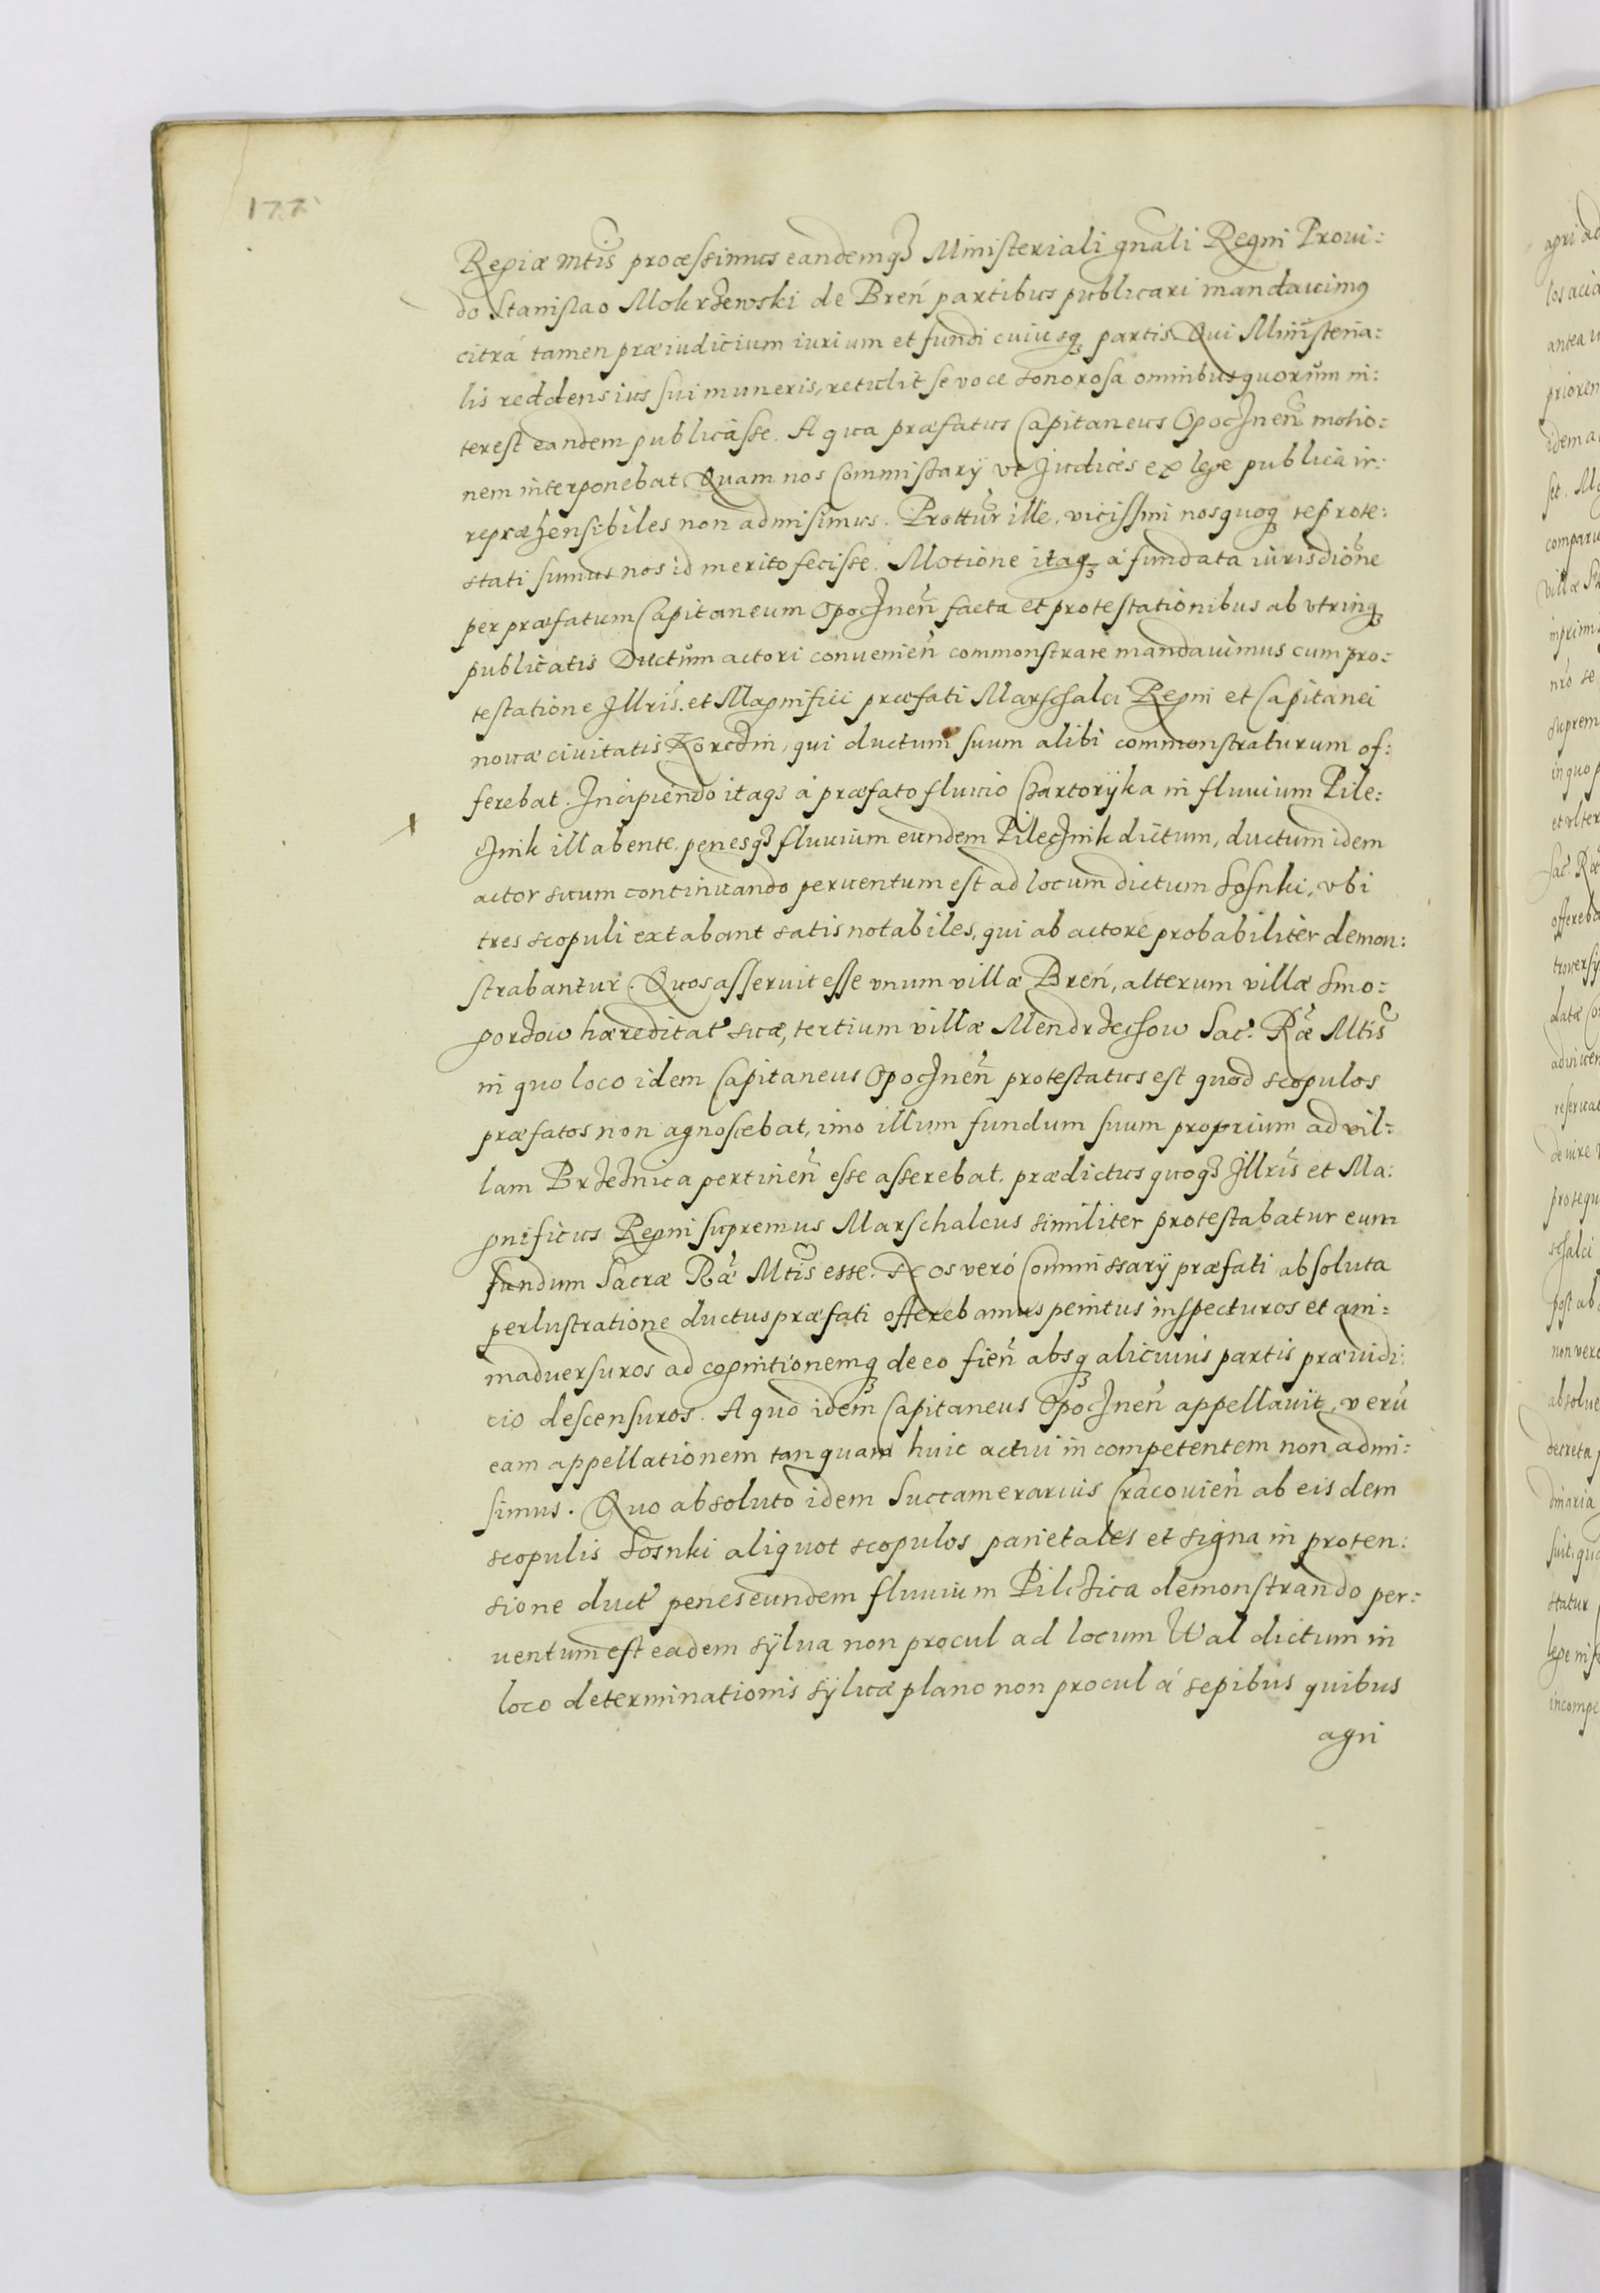 177
Regiæ Mtis processimus eandemq₃ Ministeriali gnali Regni Proui:
do Stanislao Mokrzewski de Breń partibus publicari mandauimus
citrá tamen præiudicium iurium et fundi cuiusq₃ partis. Qui Ministeria:
lis reddens ius sui muneris, retulit se voce sonorosa omnibus quorum in:
terest eandem publicasse. A qua præfatus Capitaneus Opocznen̄ motio:
nem interponebat. Quam nos Commissarÿ vt Judices ex lege publica ir:
repræhensibiles non admisimus. Prottur ille, vicissim nos quoq₃ reprote:
stati sumus nos id merito fecisse. Motione itaq₃ á fundata iurisdione
per præfatum Capitaneum Opocznen̄ facta et protestationibus ab vtrinq₃
publicatis Ductum actori convenien̄ commonstrare mandauimus cum pro:
testatione Jllris. et Magnifici præfati Marschalci Regni et Capitanei
nouæ civitatis Korczin, qui ductum suum alibi commonstraturum of:
ferebat. Incipiendo itaq₃ á præfato fluuio Czartorÿka in fluuium Pile:
cznik illabente, penesq₃ fluuium eundem Pilecznik dictum, ductum idem
actor suum continuando peruentum est ad locum dictum Sosnki, vbi
tres scopuli extabant satis notabiles, qui ab actore probabiliter demon:
strabantur. Quos asseruit esse vnum villæ Breń, alterum villæ Smo:
gorzow hæreditat suæ, tertium villæ Mendrzechow Sac. Ræ Mtis
in quo loco idem Capitaneus Opocznen̄ protestatus est quod scopulos
præfatos non agnoscebat, imo illum fundum suum proprium ad vil:
lam Brzeznica pertinen̄ esse asserebat. prædictus quoq₃ Jllris et Ma:
gnificus Regni supremus Marschalcus similiter protestabatur eum
fundum Sacræ Ræ Mtis esse. Nos veró Commissarÿ præfati absoluta
perlustratione ductus præfati offerebamus penitus inspecturos et ani:
maduersuros ad cognitionemq₃ de eo fien̄ absq₃ alicuius partis præiudi:
cio descensuros. A quo idem Capitaneus Opocznen̄ appellauit, verū
eam appellationem tanquam huic actui incompetentem non admi:
simus. Quo absoluto idem Succamerarius Cracouien̄ ab eisdem
scopulis Sosnki aliquot scopulos parietales et signa in proten:
sione duct penes eundem fluuium Pilczica demonstrando per:
uentum est eadem sÿlua non procul ad locum Wal dictum in
loco determinationis sÿluæ plano non procul á sepibus quibus
agri